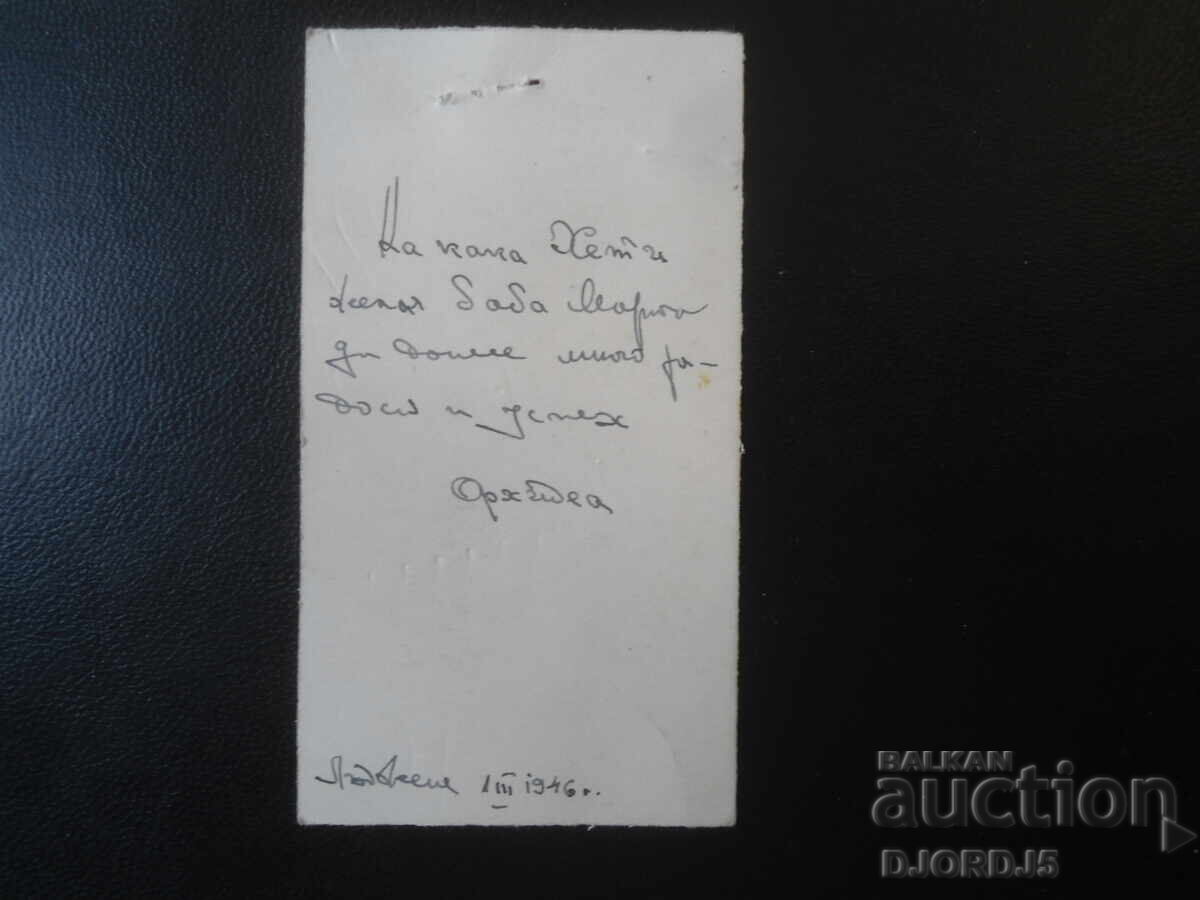 На кака Хети
желая баба Марта
да донесе много ра-
дост и успех
Орхидея
Лъджене 1 III 1946 г.
BALKAN
auction
DJORDJ5